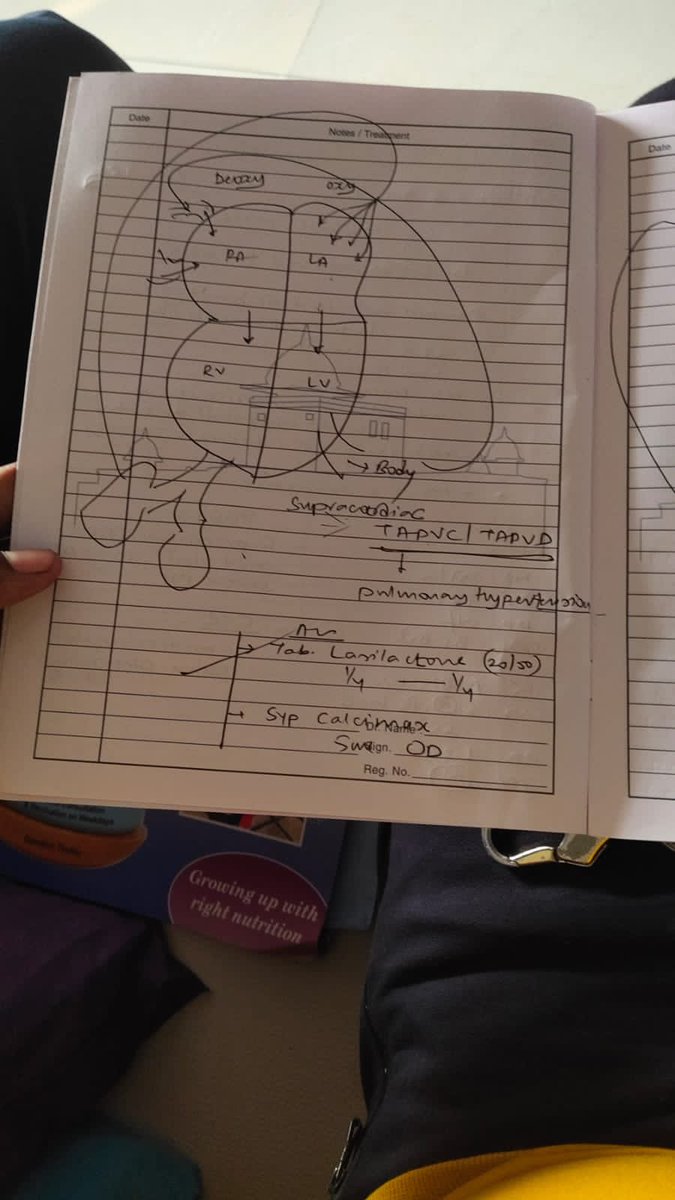 Date
Notes / Treatment
Date
Deoxy oxy
RA LA
RV LV
→ Body
Supracardiac
TAPVC / TAPVD
pulmonary hypertension
Tab. Lasilactone (20/50)
1/4 — 1/4
Syp Calcimax
Dr. Name
Sign. OD
Reg. No.
Growing up with
right nutrition